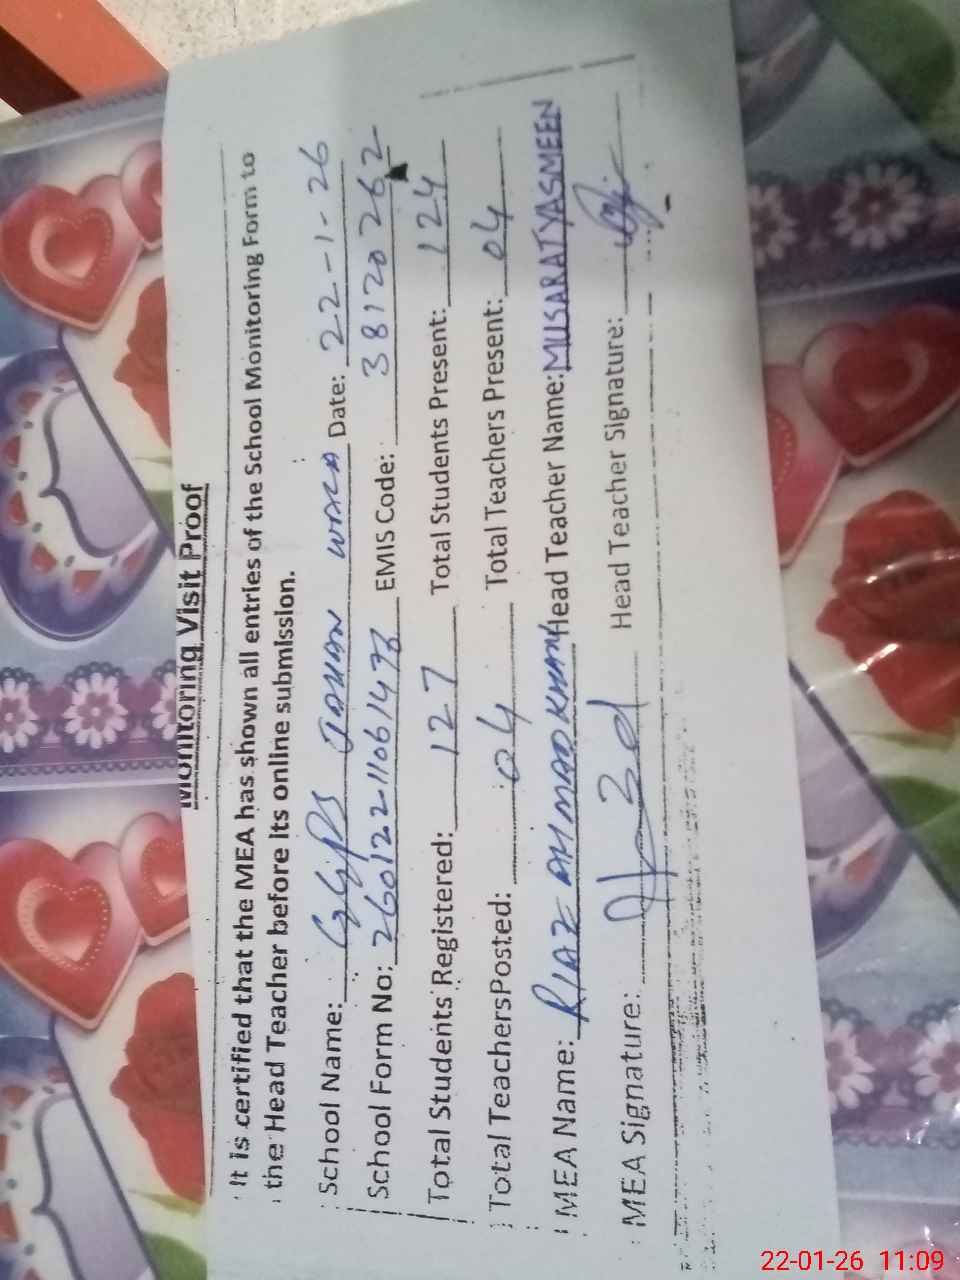 Monitoring Visit Proof
It is certified that the MEA has shown all entries of the School Monitoring Form to
the Head Teacher before its online submission.
School Name: GGPS JOHAN WALA Date: 22-1-26
School Form No: 260122-11061473 EMIS Code: 38120262
Total Students Registered: 127 Total Students Present: 124
Total TeachersPosted: 04 Total Teachers Present: 04
MEA Name: RIAZ AHMAD KHAN Head Teacher Name: MUSARAT YASMEEN
MEA Signature: Head Teacher Signature:
22-01-26 11:09